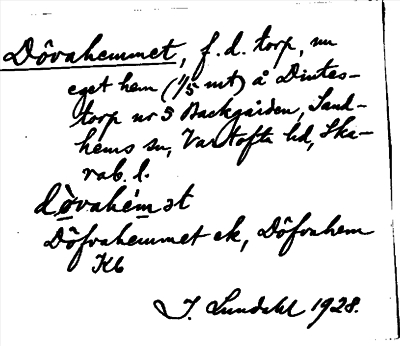 Dôvahemmet, f. d. torp, nu
eget hem (1/5 mt) å Dintes-
torp nr 3 Backgården, Sand-
hems sn, Vartofta hd, Ska-
rab. l.
dòvahémət
Dôfvahemmet ek, Dôfvahem
Kb
I. Lundahl 1928.